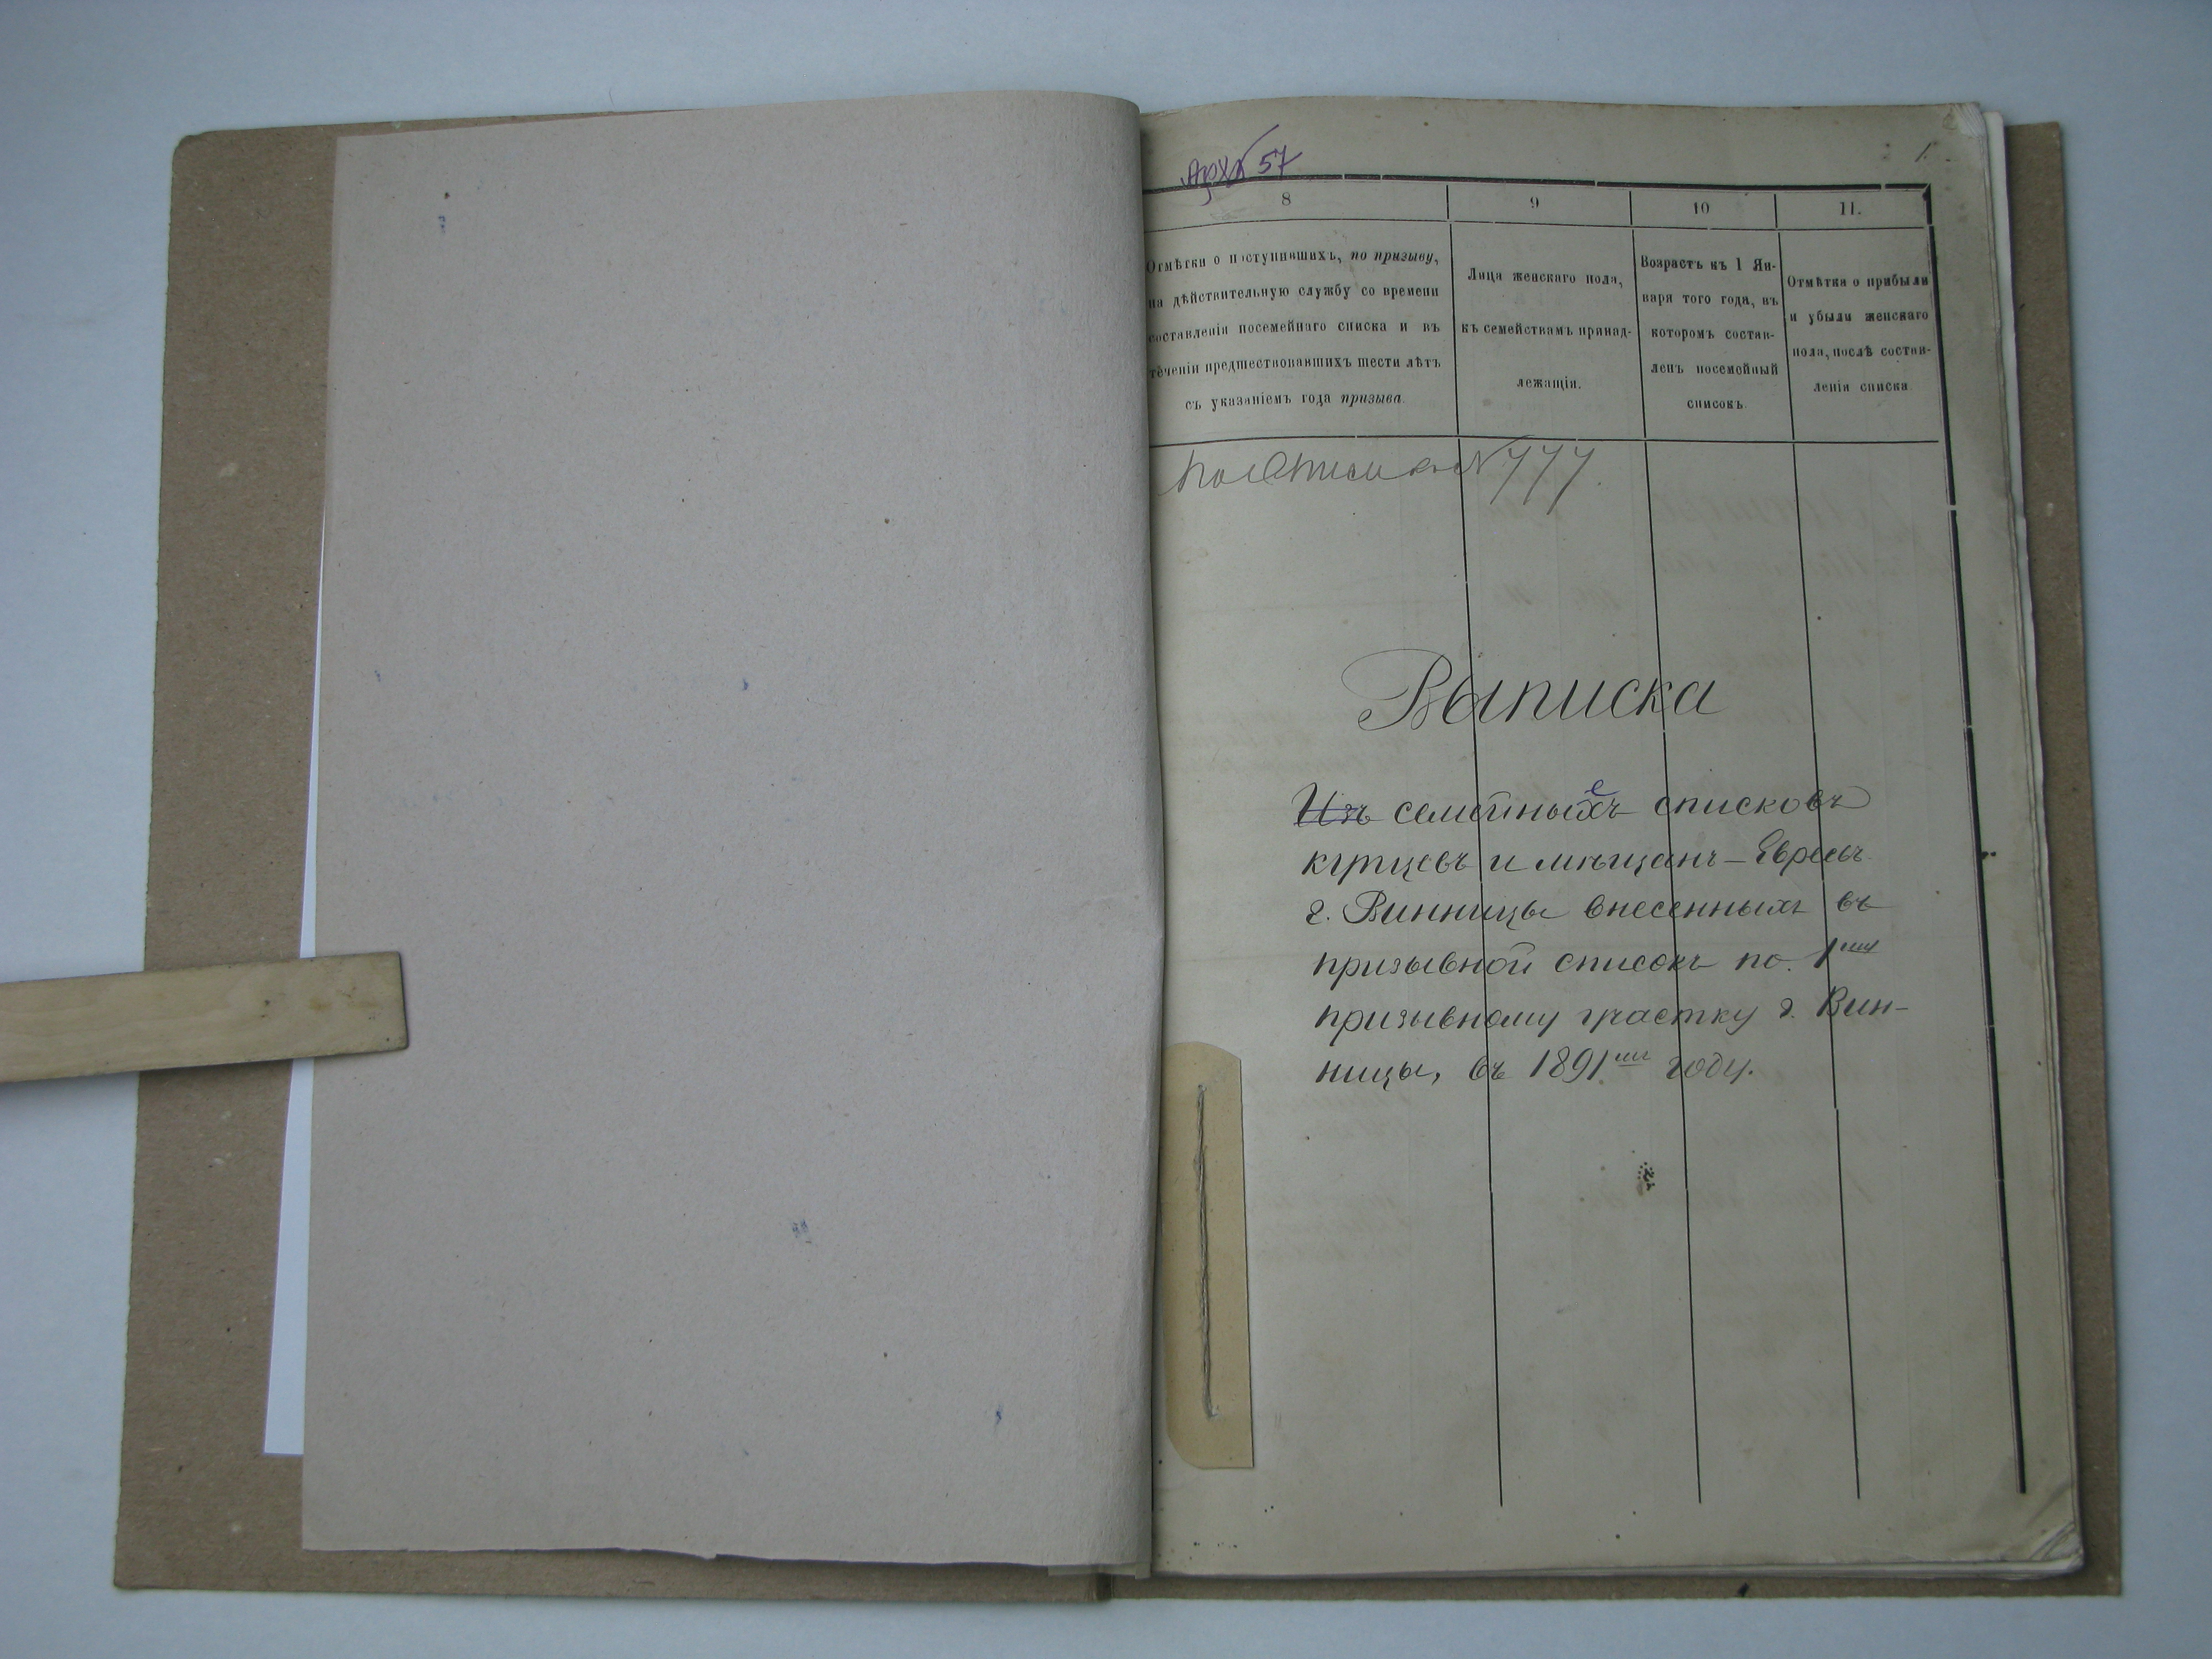 Арх 57
1.
8
9
10
11.
Отмѣтки о поступившихъ, по призыву,
на дѣйствительную службу со времени
составленія посемейнаго списка и въ
теченіи предшествовавшихъ шести лѣтъ
съ указаніемъ года призыва.
Лица женскаго пола,
къ семействамъ принад-
лежащія.
Возрастъ къ 1 Ян-
варя того года, въ
которомъ состав-
ленъ посемейный
списокъ.
Отмѣтка о прибыли
и убыли женскаго
пола, послѣ состав-
ленія списка
по описи N 777.
Выписка
Изъ семейныхъ списковъ
купцевъ и мѣщанъ-Евреевъ
г. Винницы внесенныхъ въ
призывной списокъ по. 1му
призывному участку г. Вин-
ницы, въ 1891мъ году.